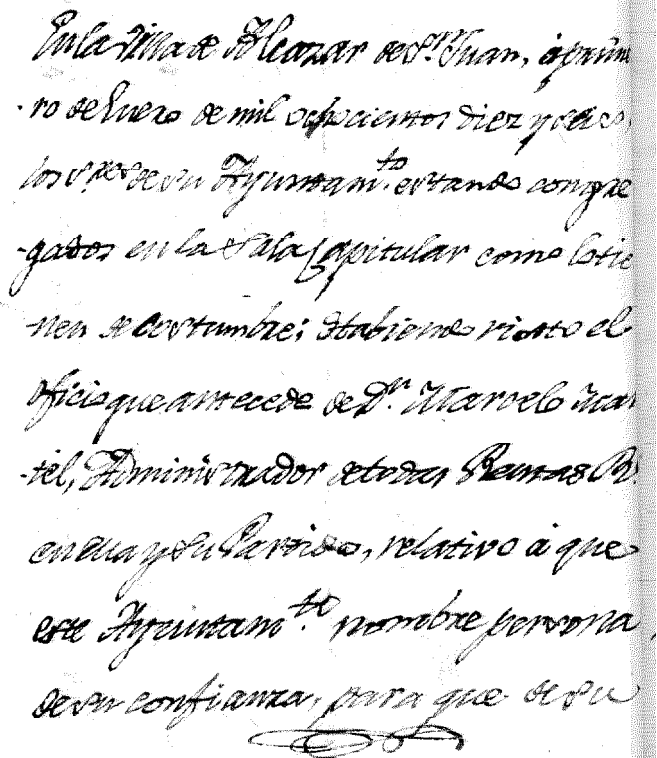 En la Villa de Alcazar de Sn. Juan, á prime
ro de Enero de mil ochocientos diez y
los Sres. de su Ayuntamto. estando congre
gados en la Sala Capitular como lo tie
nen de costumbre; Habiendo visto el
oficio que antecede de Dn. Marcelo Mar
tel, Administrador de todas Rentas Rs.
en ella y su Partido, relativo á que
este Ayuntamto. nombre persona
de su confianza, para que de su